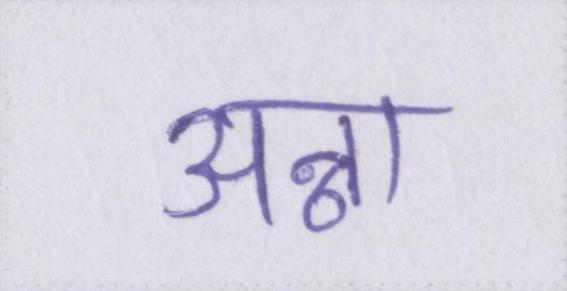 अन्ना